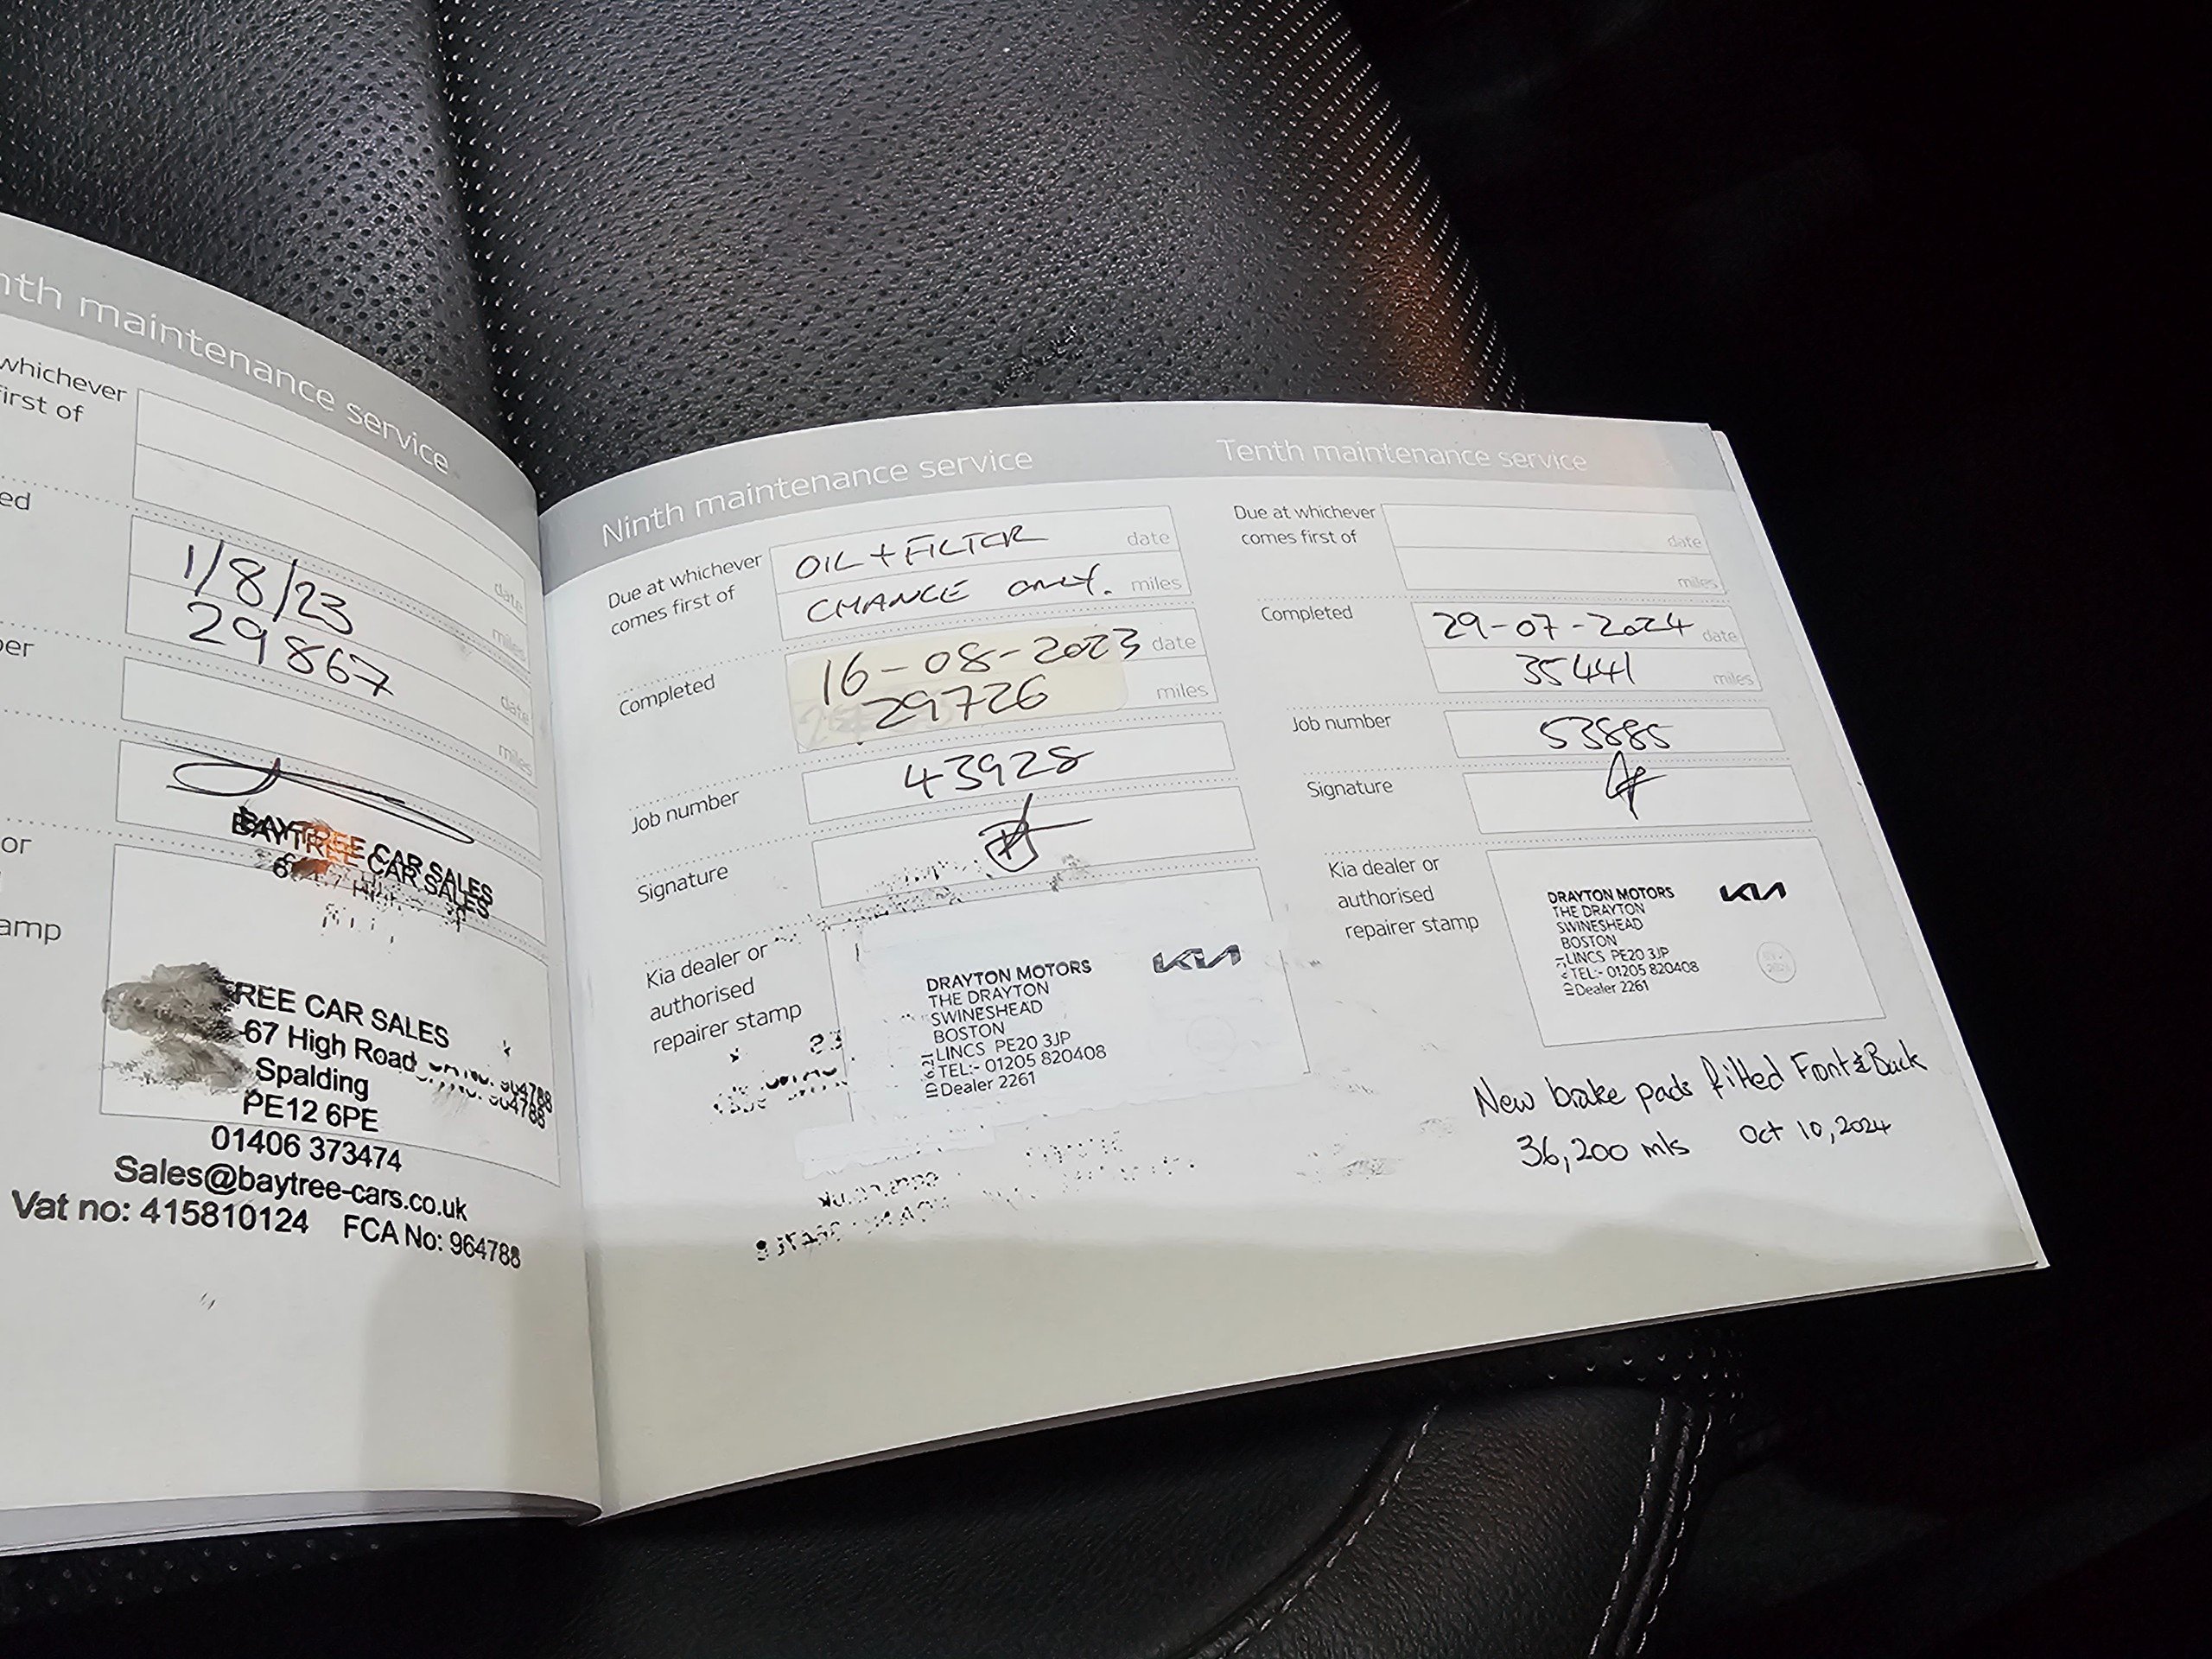 nth maintenance service
whichever
first of
date
miles
ed
1/8/23
date
29867
miles
er
or
BAYTREE CAR SALES
BAYTREE CAR SALES
amp
REE CAR SALES
67 High Road
Spalding
PE12 6PE
01406 373474
Sales@baytree-cars.co.uk
Vat no: 415810124 FCA No: 964788
Ninth maintenance service
Due at whichever
comes first of
OIL + FILTER date
CHANGE ONLY. miles
Completed
16-08-2023 date
29726 miles
Job number
43928
Signature
Kia dealer or
authorised
repairer stamp
DRAYTON MOTORS
KIA
THE DRAYTON
SWINESHEAD
BOSTON
LINCS PE20 3JP
TEL:- 01205 820408
Dealer 2261
Tenth maintenance service
Due at whichever
comes first of
date
miles
Completed
29-07-2024 date
35441 miles
Job number
53885
Signature
Kia dealer or
authorised
repairer stamp
DRAYTON MOTORS
KIA
THE DRAYTON
SWINESHEAD
BOSTON
LINCS PE20 3JP
TEL:- 01205 820408
Dealer 2261
New brake pads fitted Front & Back
36,200 mls Oct 10, 2024